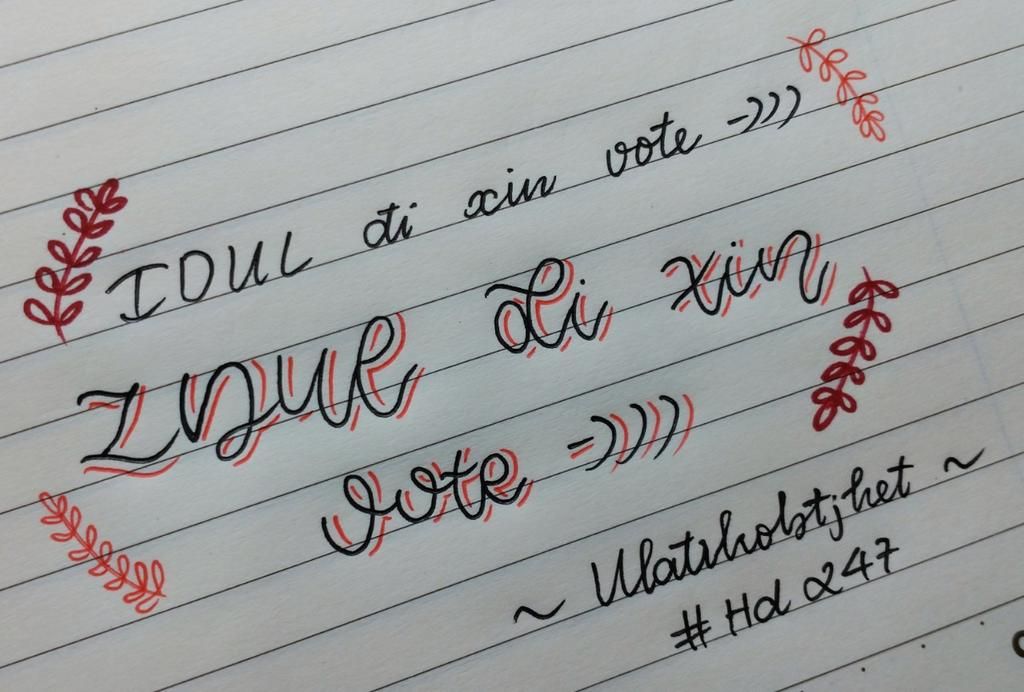 IDUL đi xin vote =)))
IDUL đi xin
vote =))))
# Hd 247